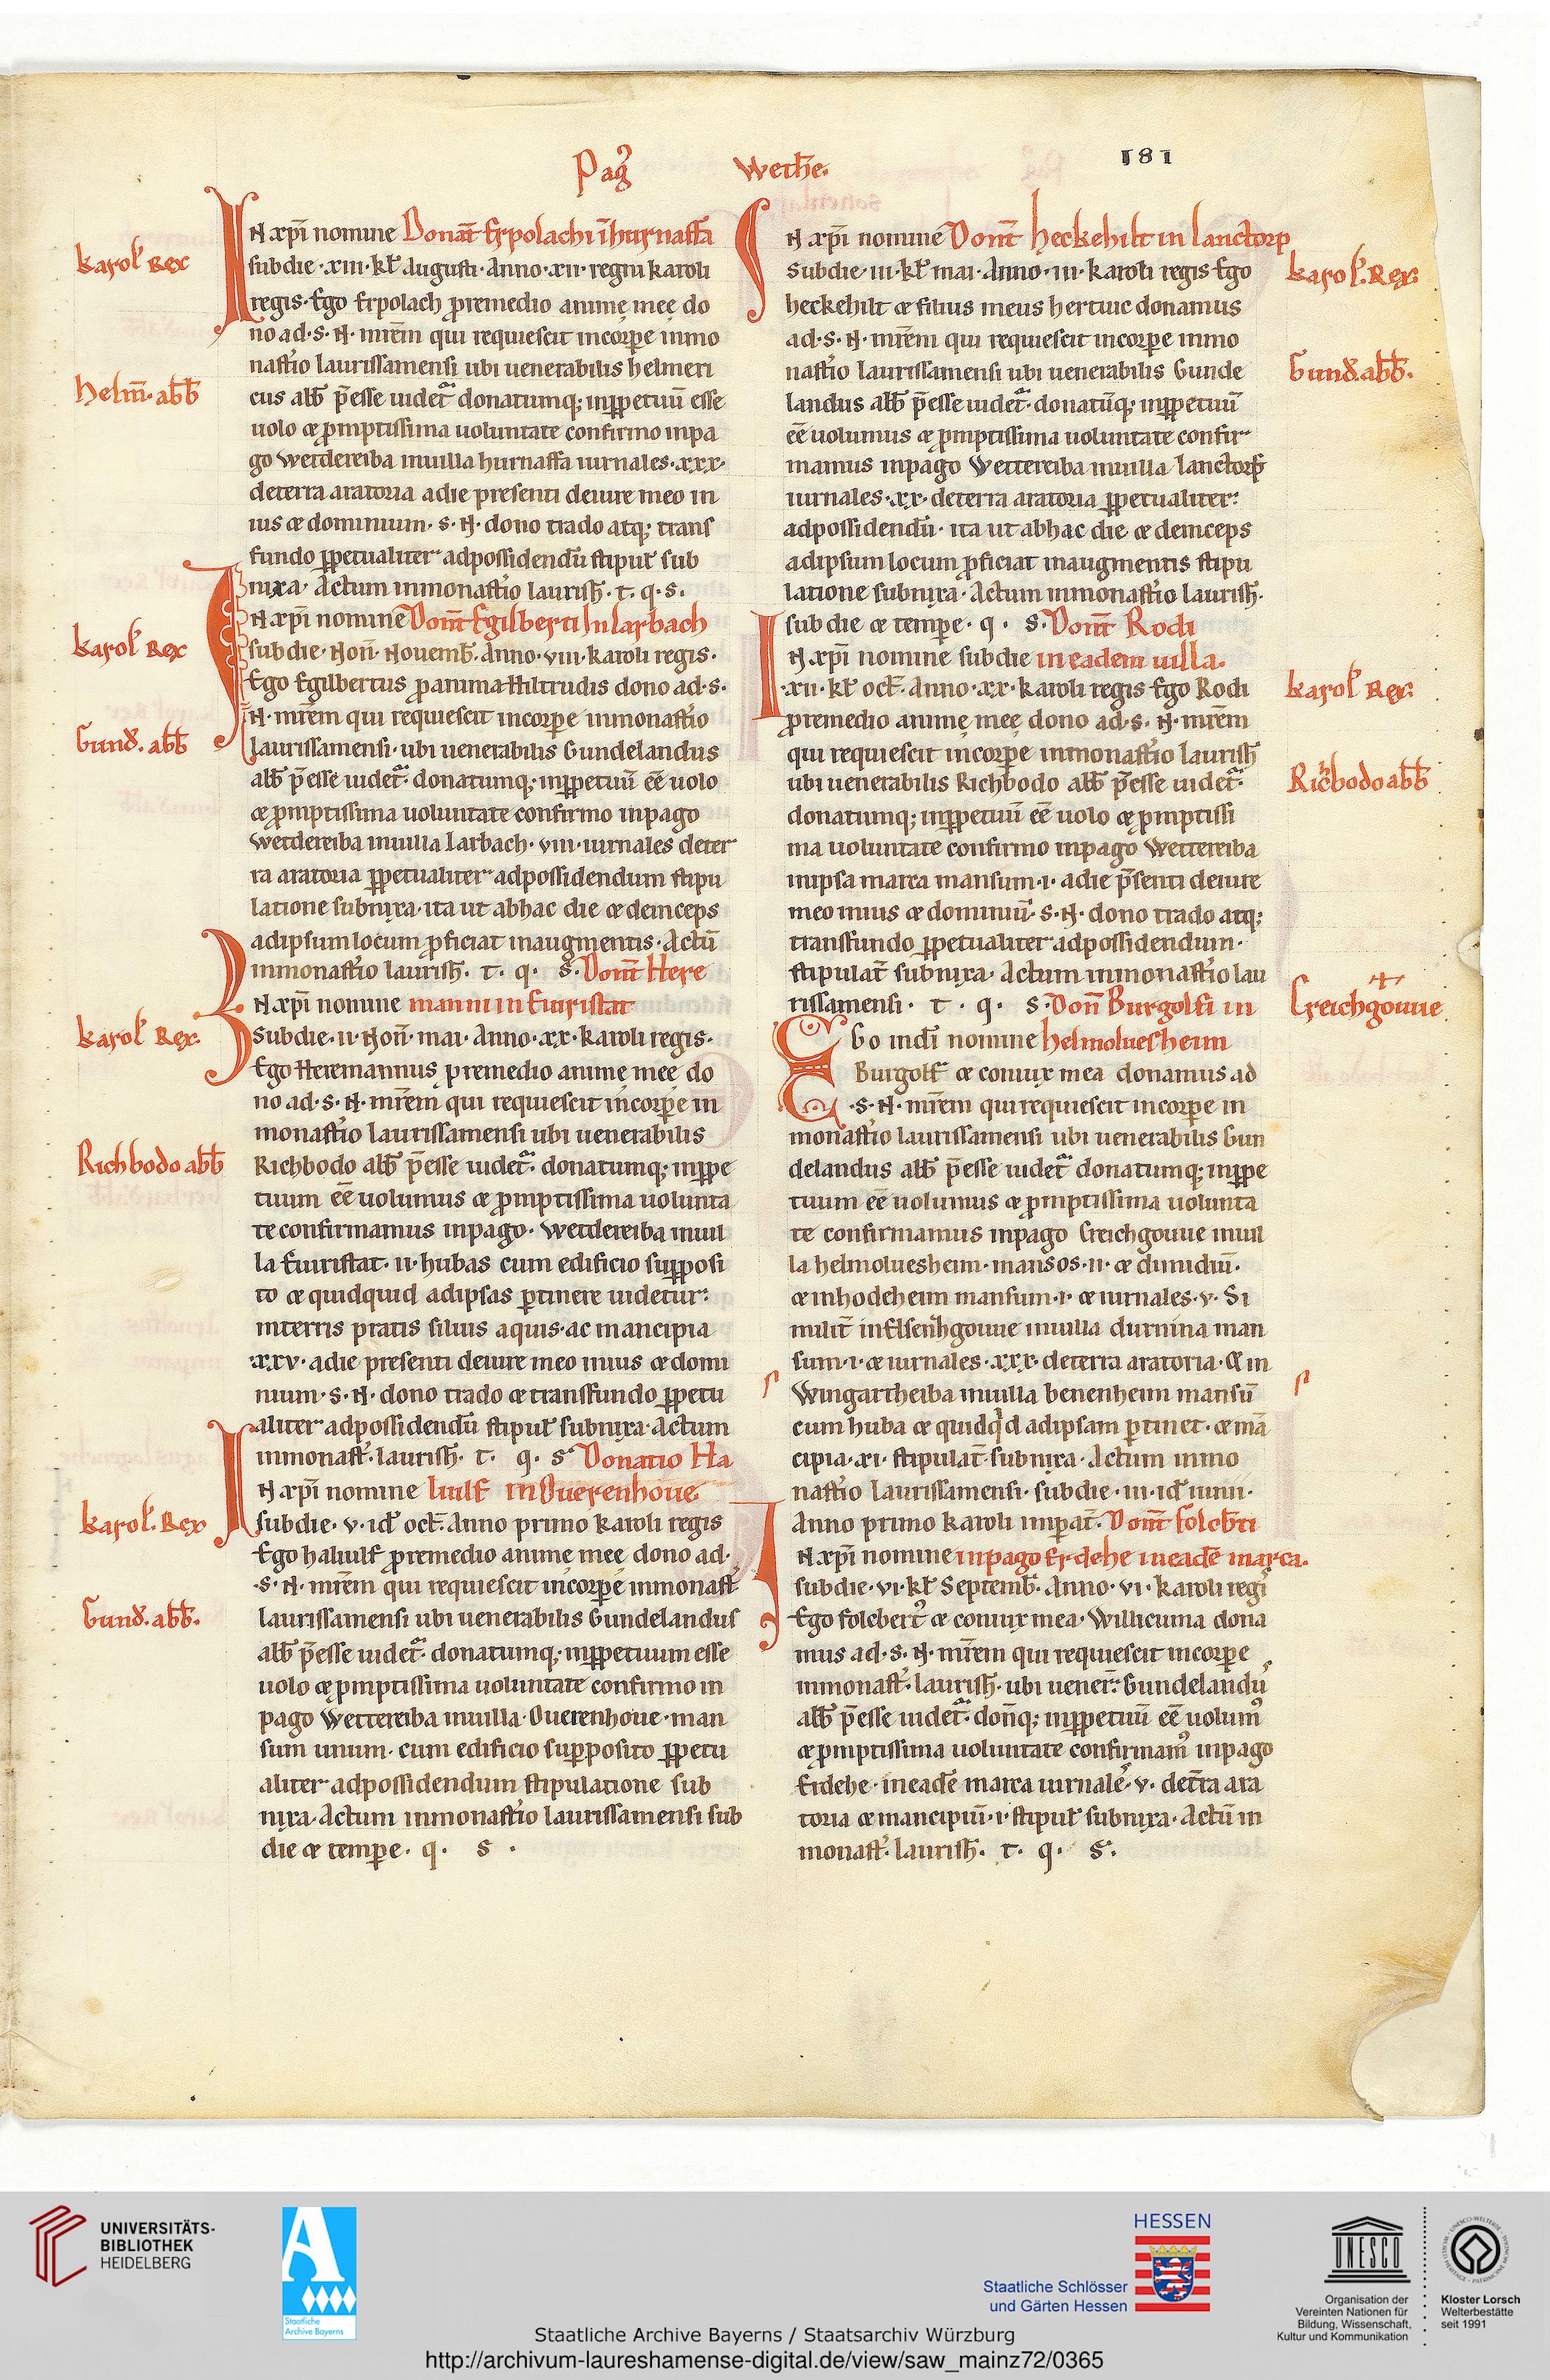 Pagꝰ Wetħe. 181
karol᷒ Rex
Helm̄. abb̄
karol᷒ Rex
Gund̄. abb̄
karol᷒ Rex.
Richbodo abb̄
karol᷒. Rex
Gund̄. abb̄.
IN xp̄i nomine Donat̄ Erpolachi ī hurnaffa
sub die · xiii · kł Augusti · Anno · xii · regni karoli
regis · Ego Erpolach ꝓ remedio anime meę do
no ad · S · N · mr̄em qui requiescit in corꝑe in mo
nast̄io laurissamensi ubi uenerabilis helmeri
cus abb̄ p̄esse uidet᷑ donatumq; inꝑpetuū esse
uolo & ꝓmptissima uoluntate confirmo in pa
go Wetdereiba in uilla hurnaffa iurnales · xxx ·
de terra aratoria a die presenti de iure meo in
ius & dominium · S · N · dono trado atq; trans
fundo ꝑpetualiter ad possidendū stipul᷒ sub
nixa · Actum in monast̄io laurish̄ · t · q · s ·
IN xp̄i nomine Dont̄ Egilberti In larbach
sub die · Non̄ · Nouemb̄ · Anno · viii · karoli regis ·
Ego Egilbertus ꝓ anima Hiltrudis dono ad · S ·
N · mr̄em qui requiescit in corꝑe in monast̄io
laurissamensi · ubi uenerabilis Gundelandus
abb̄ p̄esse uidet᷑ · donatumq; inꝑpetuū eē uolo
& ꝓmptissima uoluntate confirmo in pago
Wetdereiba in uilla Larbach · viii · iurnales de ter
ra aratoria ꝑpetualiter ad possidendum stipu
latione subnixa · ita ut ab hac die & deinceps
ad ipsum locum ꝓficiat in augmentis · Actū
in monast̄io laurish̄ · t · q · s · Dont̄ Here
IN xp̄i nomine manni in Euiristat
Sub die · ii · Non̄ · mai · Anno · xx · karoli regis ·
Ego Heremannus ꝓ remedio anime meę do
no ad · S · N · mr̄em qui requiescit in corꝑe in
monast̄io laurissamensi ubi uenerabilis
Richbodo abb̄ p̄esse uidet᷑ · donatumq; inꝑpe
tuum eē uolumus & ꝓmptissima uolunta
te confirmamus in pago · Wetdereiba in uil
la Euiristat · ii · hubas cum edificio suꝑposi
to & quidquid ad ipsas ꝑtinere uidetur ·
in terris pratis siluis aquis · ac mancipia
· xxv · a die presenti de iure meo in ius & domi
nium · S · N · dono trado & transfundo ꝑpetu
aliter ad possidendū stipul᷒ subnixa · Actum
in monast̄ · laurish̄ · t · q · s · Donatio Ha
IN xp̄i nomine liulf in Ouerenhoue
sub die · v · id᷒ oct̄ · Anno primo karoli regis
Ego haliulf ꝓ remedio anime mee dono ad ·
· S · N · mr̄em qui requiescit in corꝑe in monast̄
laurissamensi ubi uenerabilis Gundelandus
abb̄ p̄esse uidet᷑ · donatumq; inꝑpetuum esse
uolo & ꝓmptissima uoluntate confirmo in
pago Wettereiba in uilla · Ouerenhoue · man
sum unum · cum edificio suꝑposito ꝑpetu
aliter ad possidendum stipulatione sub
nixa · Actum in monast̄io laurissamensi sub
die & tempe · q · s ·
IN xp̄i nomine Dont̄ heckehilt in lanctorp
Sub die · iii · kł mai · Anno · iii · karoli regis Ego
heckehilt & filius meus hertuic donamus
ad · S · N · mr̄em qui requiescit in corꝑe in mo
nast̄io laurissamensi ubi uenerabilis Gunde
landus abb̄ p̄esse uidet᷑ · donatūq; inꝑpetuū
eē uolumus & ꝓmptissima uoluntate confir
mamus in pago Wettereiba in uilla lanctorp
iurnales · xx · de terra aratoria ꝑpetualiter ·
ad possidendū · ita ut ab hac die & deinceps
ad ipsum locum ꝓficiat in augmentis stipu
latione subnixa · Actum in monast̄io laurish̄ ·
sub die & tempe · q · s · Dont̄ Rodi
IN xp̄i nomine sub die in eadem uilla.
· xii · kł oct̄ · Anno · xx · karoli regis Ego Rodi
ꝓ remedio animę meę dono ad · S · N · mr̄em
qui requiescit in corꝑe in monast̄io laurish̄
ubi uenerabilis Richbodo abb̄ p̄esse uidet᷑ ·
donatumq; inꝑpetuū eē uolo & ꝓmptissi
ma uoluntate confirmo in pago Wettereiba
in ipsa marca mansum · i · a die p̄senti de iure
meo in ius & dominiū · S · N · dono trado atq;
transfundo ꝑpetualiter ad possidendum ·
stipulat̄ subnixa · Actum in monast̄io lau
rissamensi · t · q · s · Don̄ Burgolfi in
EGo in dī nomine helmoluesheim
Burgolf & coniux mea donamus ad
· S · N · mr̄em qui requiescit in corꝑe in
monast̄io laurissamensi ubi uenerabilis Gun
delandus abb̄ p̄esse uidet᷑ donatumq; inꝑpe
tuum eē uolumus & ꝓmptissima uolunta
te confirmamus in pago Creichgouue in uil
la helmoluesheim · mansos · ii · & dimidiū ·
& in hodeheim mansum · i · & iurnales · v · Si
milit̄ in Elsenhgouue in uilla durnina man
sum · i · & iurnales · xxx · de terra aratoria · & in
Wingartheiba in uilla benenheim mansū
cum huba & quidqͥd ad ipsam ꝑtinet · & mā
cipia · xi · stipulat̄ subnixa · Actum in mo
nast̄io laurissamensi · sub die · iii · id᷒ iunii ·
Anno primo karoli imꝑat̄ · Dont̄ folcb̄ti
IN xp̄i nomine in pago Erdehe in eadē marca.
sub die · vi · kł Septemb̄ · Anno · vi · karoli regiꝰ
Ego folcbertꝰ & coniux mea · Willicuma dona
mus ad · S · N · mr̄em qui requiescit in corꝑe
in monast̄ · laurish̄ · ubi uener̄ · Gundelanduꝰ
abb̄ p̄esse uidet᷑ · don̄q; inꝑpetuū eē uolumꝰ
& ꝓmptissima uoluntate confirmamꝰ in pago
Erdehe · in eadē marca iurnaleꝰ · v · de t̄ra ara
toria & mancipiū · i · stipul᷒ subnixa · Actū in
monast̄ · laurish̄ · t · q · s ·
karol᷒. Rex.
Gund̄. abb̄.
karol᷒ Rex.
Richbodo abb̄
Creichgouue
UNIVERSITÄTS-
BIBLIOTHEK
HEIDELBERG
Staatliche
Archive Bayerns
HESSEN
Staatliche Schlösser
und Gärten Hessen
UNESCO
Organisation der
Vereinten Nationen für
Bildung, Wissenschaft,
Kultur und Kommunikation
Kloster Lorsch
Welterbestätte
seit 1991
Staatliche Archive Bayerns / Staatsarchiv Würzburg
http://archivum-laureshamense-digital.de/view/saw_mainz72/0365